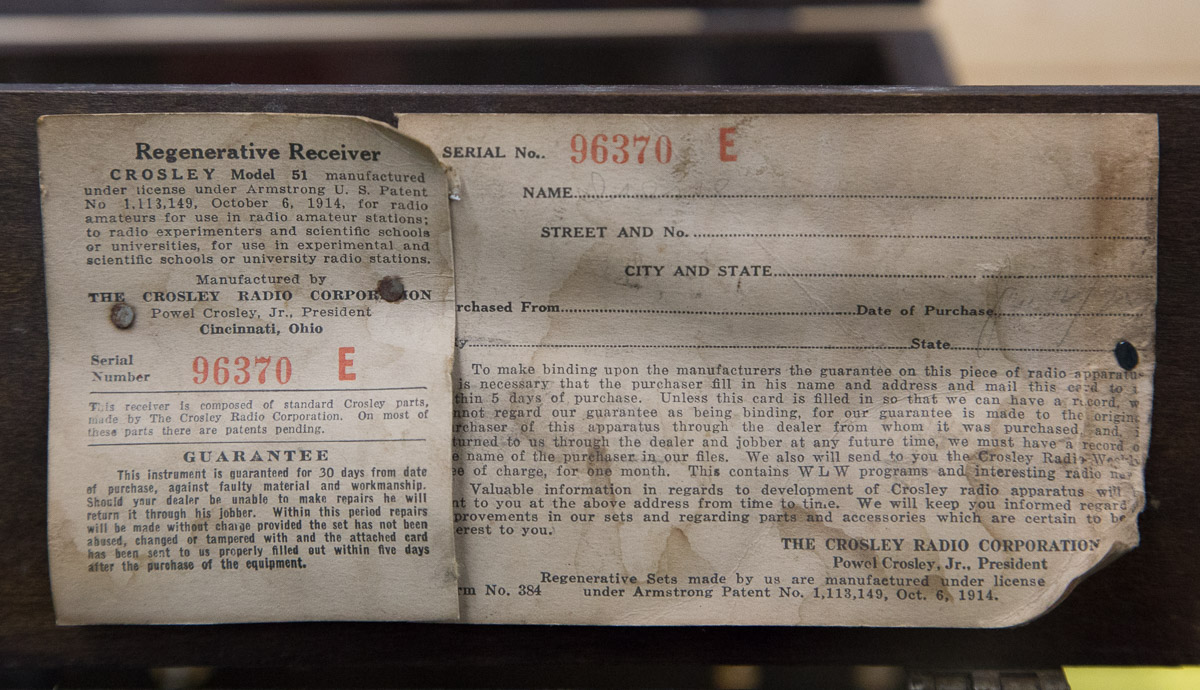 Regenerative Receiver
CROSLEY Model 51 manufactured
under license under Armstrong U. S. Patent
No 1,113,149, October 6, 1914, for radio
amateurs for use in radio amateur stations;
to radio experimenters and scientific schools
or universities, for use in experimental and
scientific schools or university radio stations.
Manufactured by
THE CROSLEY RADIO CORPORATION
Powel Crosley, Jr., President
Cincinnati, Ohio
Serial
Number 96370 E
This receiver is composed of standard Crosley parts,
made by The Crosley Radio Corporation. On most of
these parts there are patents pending.
GUARANTEE
This instrument is guaranteed for 30 days from date
of purchase, against faulty material and workmanship.
Should your dealer be unable to make repairs he will
return it through his jobber. Within this period repairs
will be made without charge provided the set has not been
abused, changed or tampered with and the attached card
has been sent to us properly filled out within five days
after the purchase of the equipment.
SERIAL No.. 96370 E
NAME
STREET AND No.
CITY AND STATE
rchased From Date of Purchase
y State
To make binding upon the manufacturers the guarantee on this piece of radio apparatus
is necessary that the purchaser fill in his name and address and mail this card to
thin 5 days of purchase. Unless this card is filled in so that we can have a record, w
nnot regard our guarantee as being binding, for our guarantee is made to the origin
rchaser of this apparatus through the dealer from whom it was purchased, and, i
turned to us through the dealer and jobber at any future time, we must have a record o
e name of the purchaser in our files. We also will send to you the Crosley Radio Week
ee of charge, for one month. This contains WLW programs and interesting radio
Valuable information in regards to development of Crosley radio apparatus will
nt to you at the above address from time to time. We will keep you informed regard
provements in our sets and regarding parts and accessories which are certain to be
erest to you.
THE CROSLEY RADIO CORPORATION
Powel Crosley, Jr., President
Regenerative Sets made by us are manufactured under license
rm No. 384 under Armstrong Patent No. 1,113,149, Oct. 6, 1914.